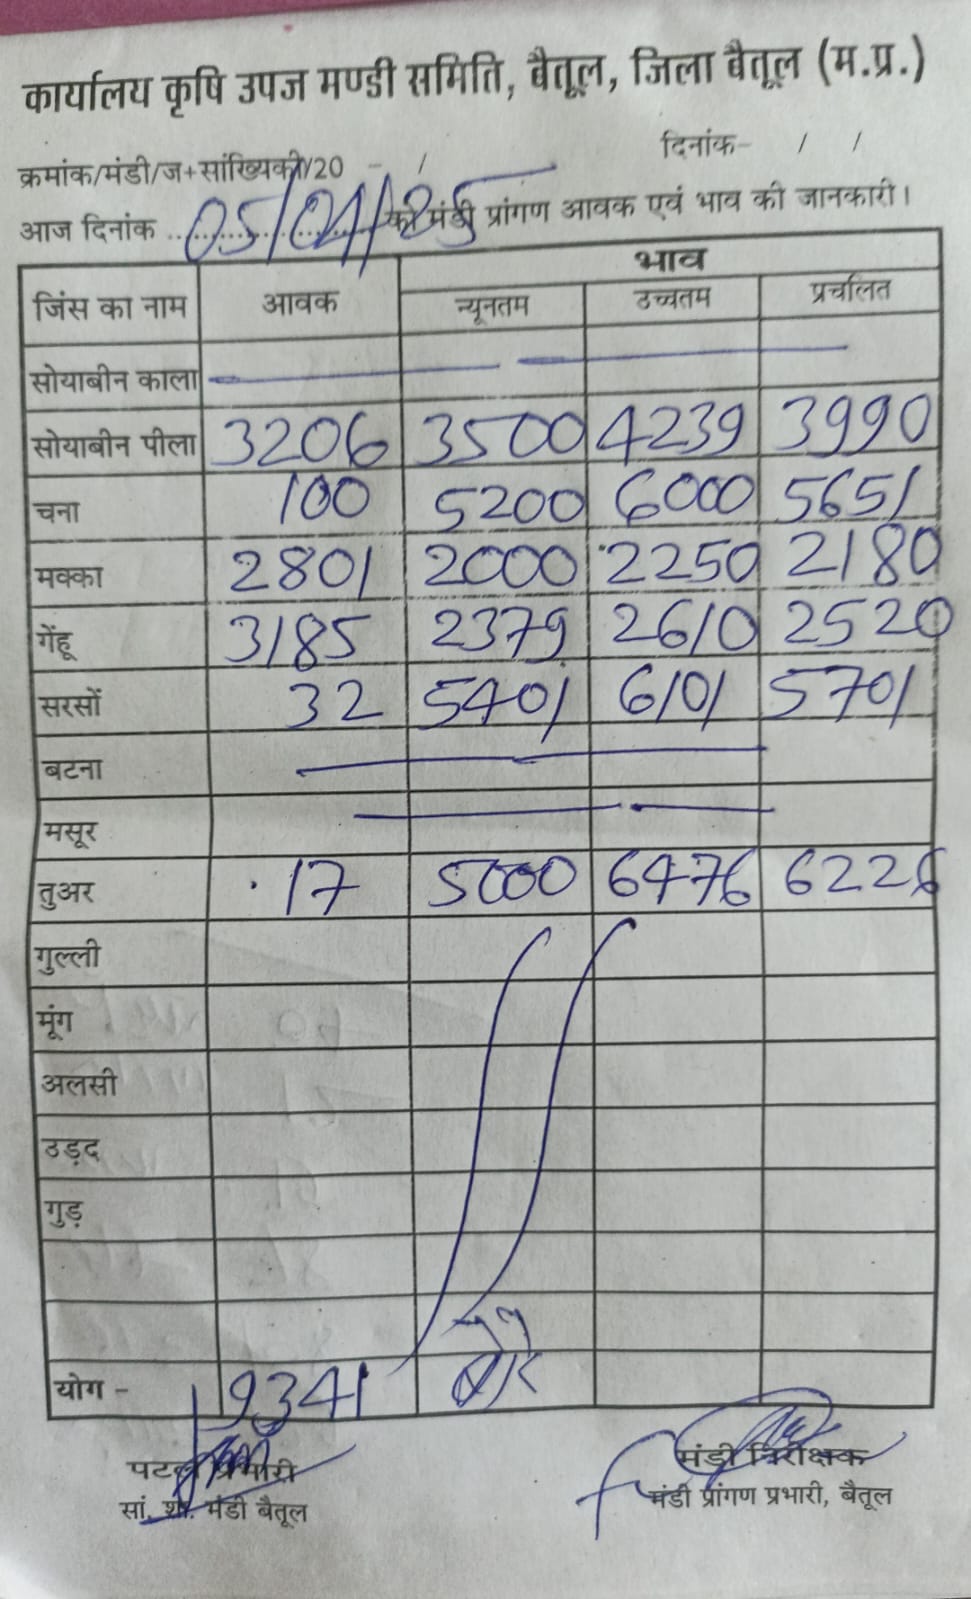 कार्यालय कृषि उपज मण्डी समिति, बैतूल, जिला बैतूल (म.प्र.)
क्रमांक/मंडी/ज+सांख्यिकी/20 - / दिनांक- / /
आज दिनांक 05/04/25 को मंडी प्रांगण आवक एवं भाव की जानकारी।
भाव
जिंस का नाम आवक न्यूनतम उच्चतम प्रचलित
सोयाबीन काला — — —
सोयाबीन पीला 3206 3500 4239 3990
चना 100 5200 6000 5651
मक्का 2801 2000 2250 2180
गेंहू 3185 2379 2610 2520
सरसों 32 5401 6101 5701
बटना —
मसूर — —
तुअर 17 5000 6476 6226
गुल्ली
मूंग
अलसी
उड़द
गुड़
योग - 9341 बोरे
पटल प्रभारी मंडी निरीक्षक
सां. शा. मंडी बैतूल मंडी प्रांगण प्रभारी, बैतूल